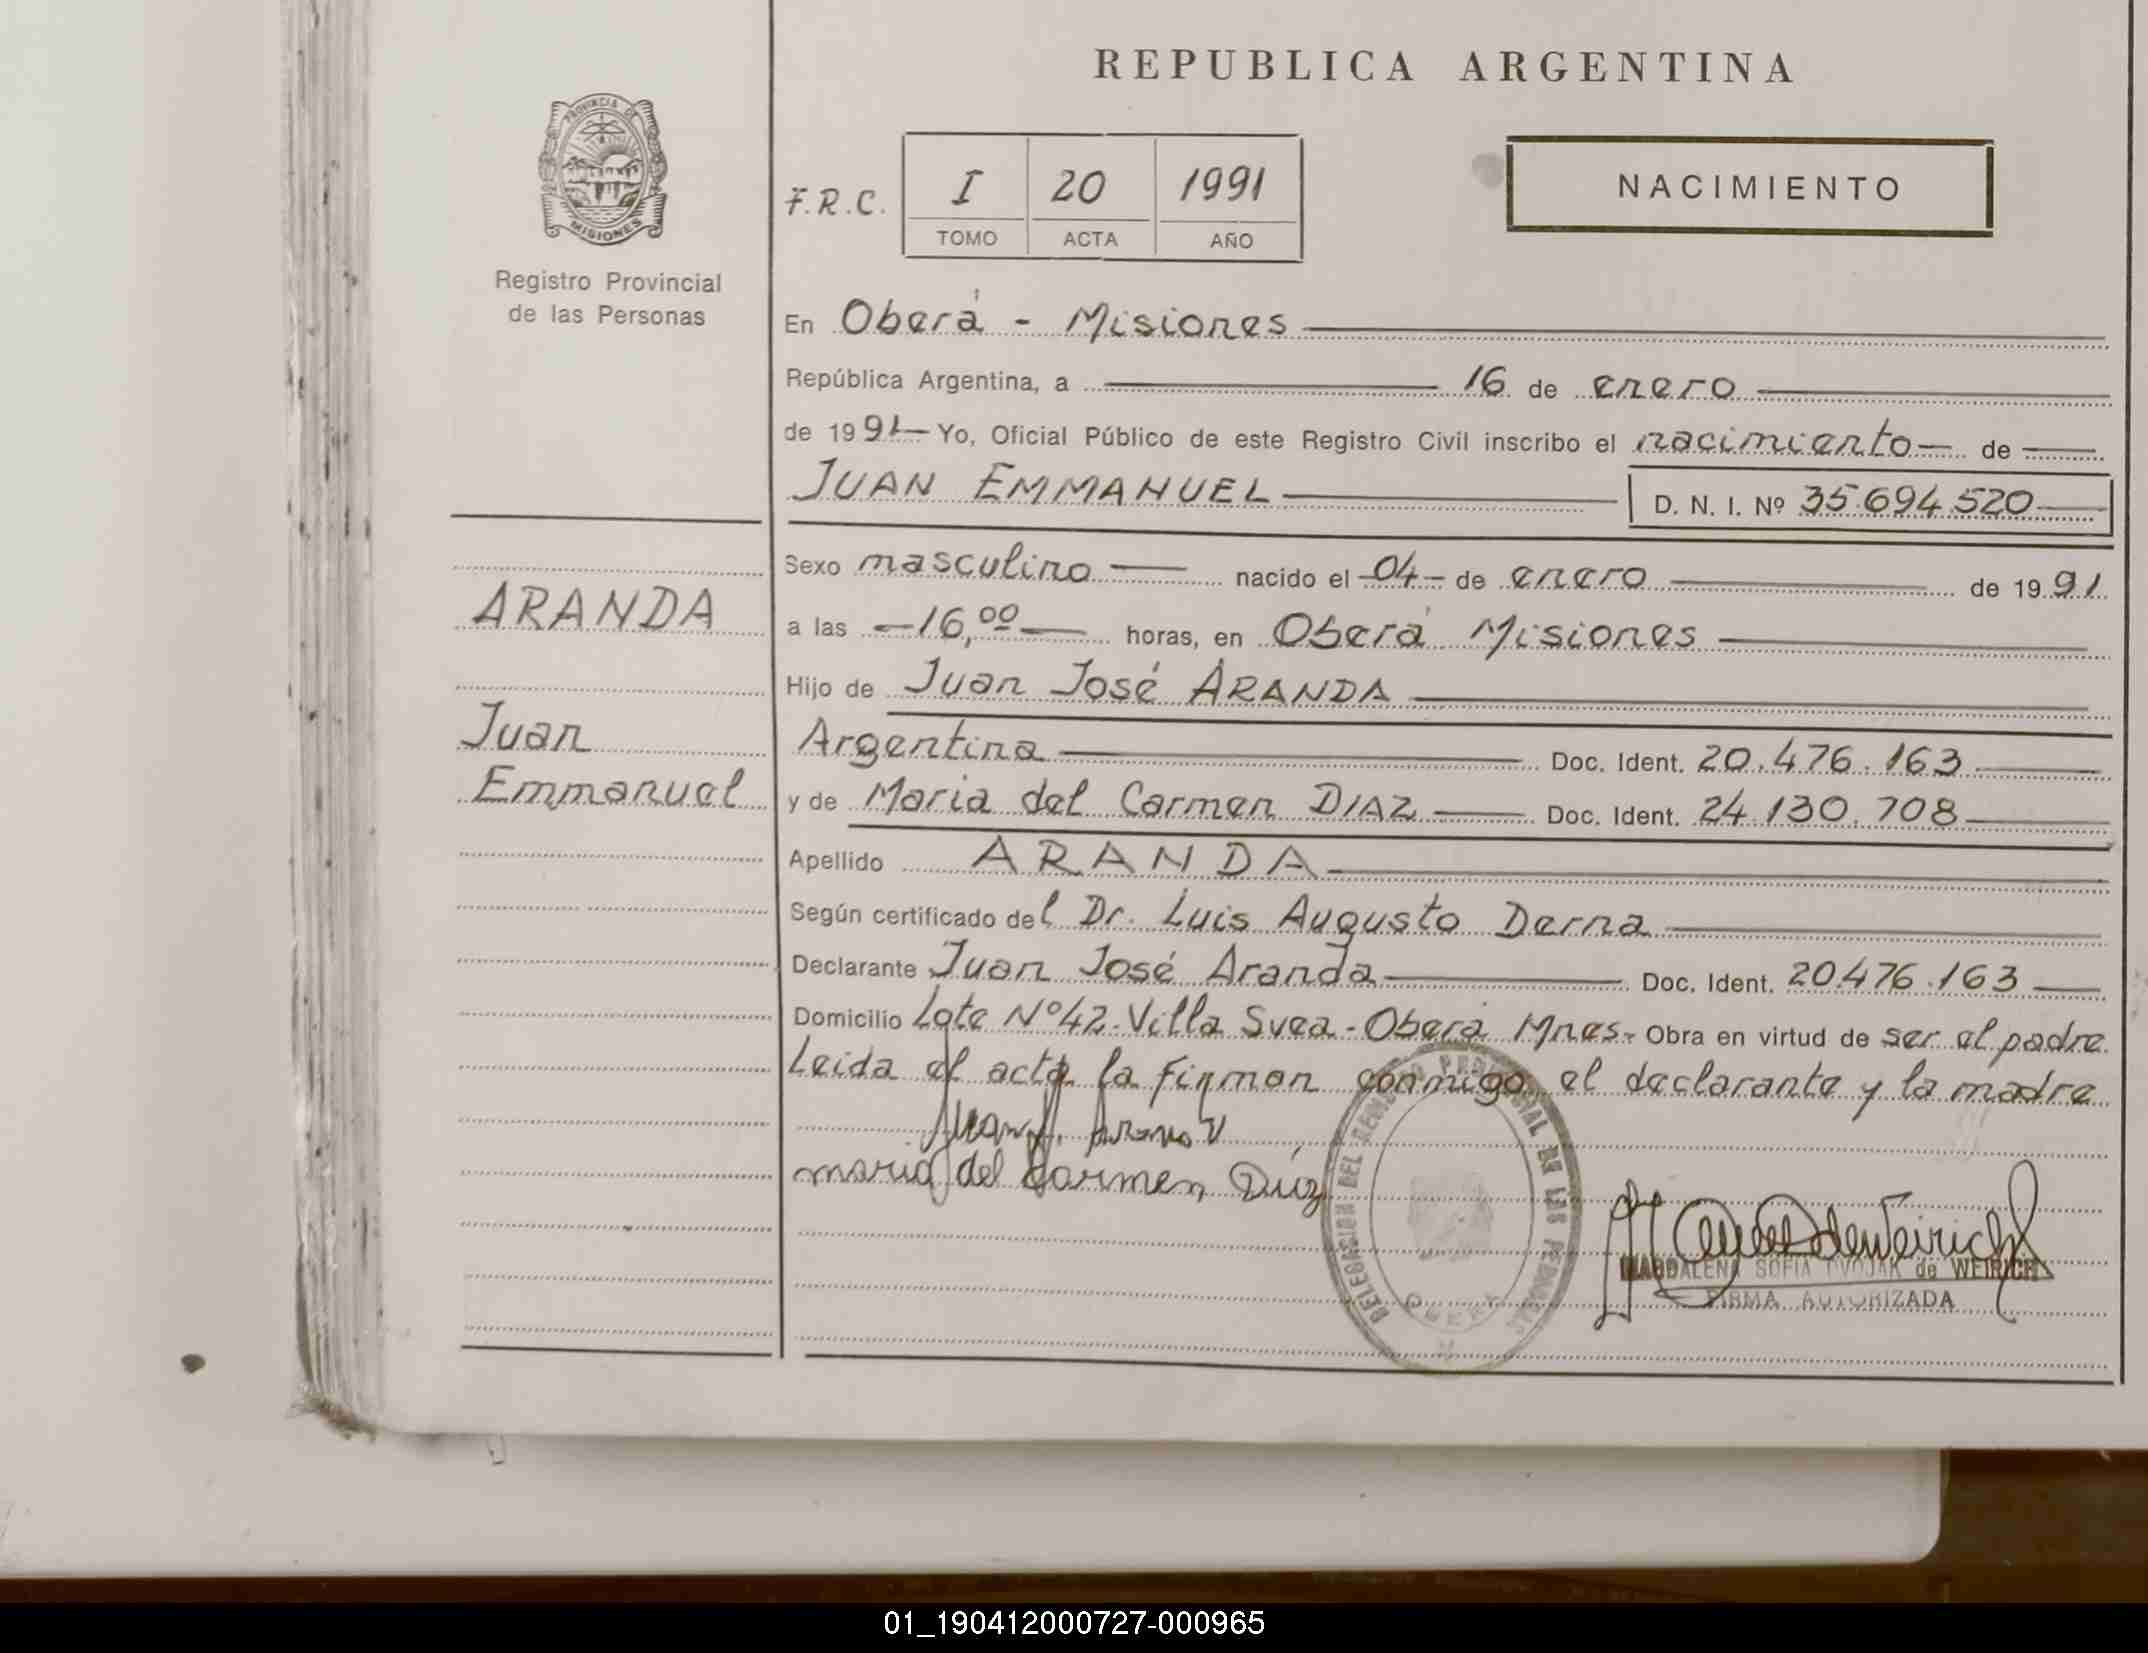 REPUBLICA ARGENTINA
PROVINCIA DE
MISIONES
Registro Provincial
de las Personas
F.R.C.
I 20 1991
TOMO ACTA AÑO
NACIMIENTO
En Oberá - Misiones
República Argentina, a 16 de enero
de 1991 Yo, Oficial Público de este Registro Civil inscribo el nacimiento de
JUAN EMMANUEL
D. N. I. Nº 35.694.520
ARANDA
Juan
Emmanuel
Sexo masculino nacido el 04 de enero de 1991
a las 16,00 horas, en Oberá Misiones
Hijo de Juan José ARANDA
Argentina Doc. Ident. 20.476.163
y de Maria del Carmen DIAZ Doc. Ident. 24.130.708
Apellido ARANDA
Según certificado del Dr. Luis Augusto Derna
Declarante Juan José Aranda Doc. Ident. 20.476.163
Domicilio Lote Nº42-Villa Svea-Oberá Mnes- Obra en virtud de ser el padre
Leida el acta la firman conmigo el declarante y la madre
Juan J. Aranda
maria del Carmen Diaz
DELEGACION DEL REGISTRO PROVINCIAL DE LAS PERSONAS
OBERA
MAGDALENA SOFIA DVOJAK de WEIRICH
FIRMA AUTORIZADA
01_190412000727-000965